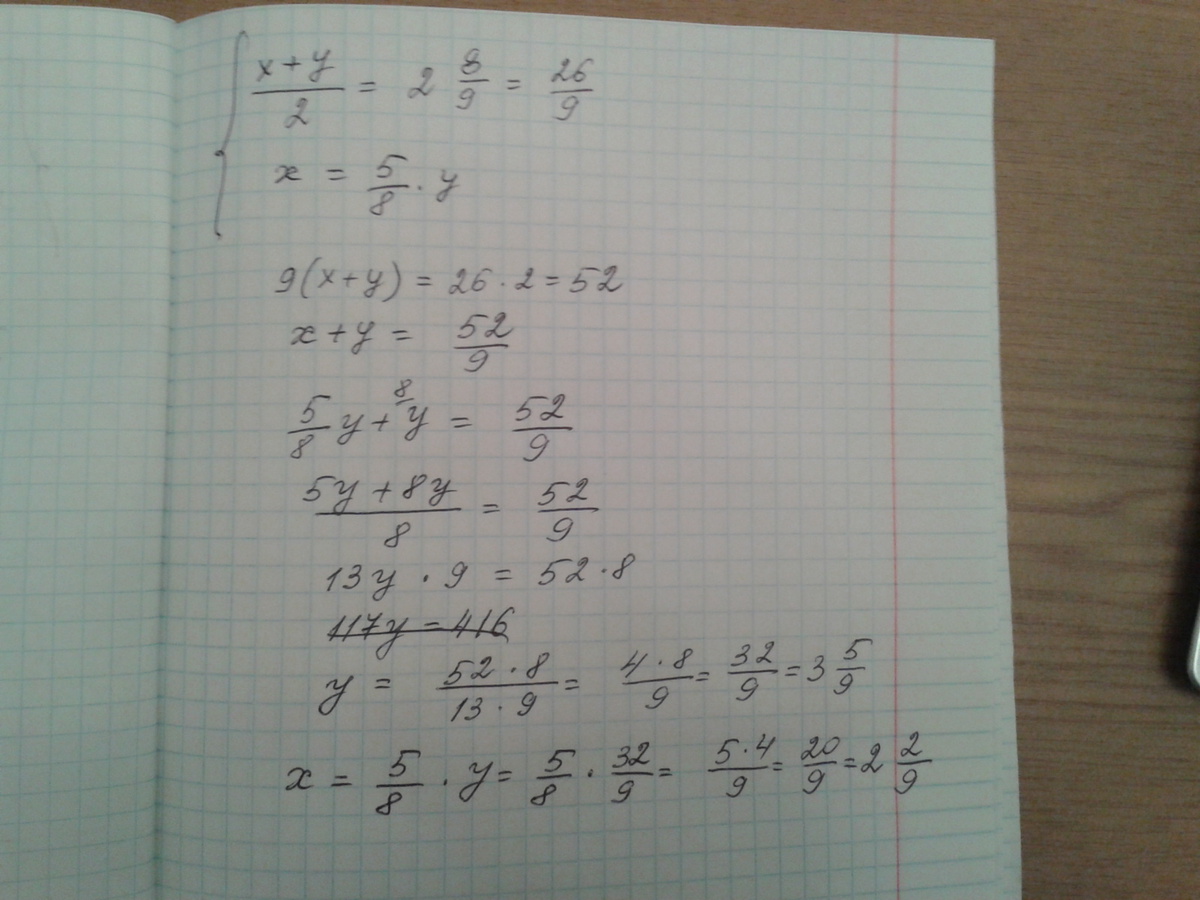 { (x+y)/2 = 2 8/9 = 26/9
x = 5/8 · y
9(x+y) = 26 · 2 = 52
x + y = 52/9
5/8 y + ⁸⁄y = 52/9
(5y + 8y)/8 = 52/9
13y · 9 = 52 · 8
117y = 416
y = (52 · 8)/(13 · 9) = (4 · 8)/9 = 32/9 = 3 5/9
x = 5/8 · y = 5/8 · 32/9 = (5 · 4)/9 = 20/9 = 2 2/9